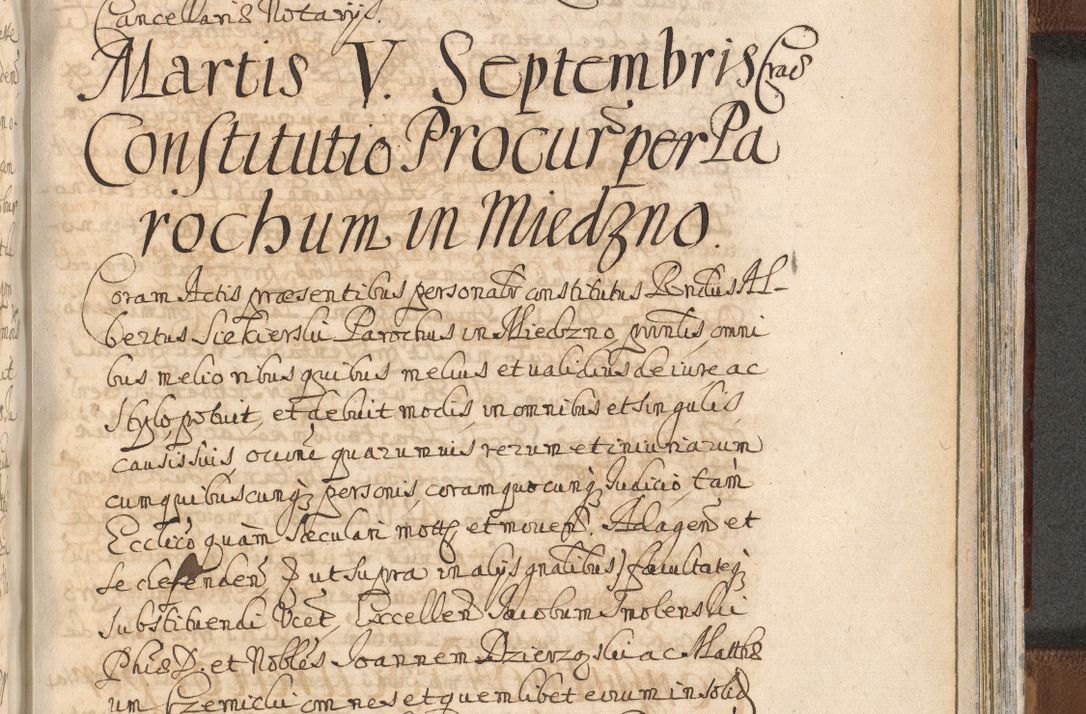 Cancellariæ Notarijs.
Martis V. Septembris Crac
Constitutio Procur̃ per Pa
rochum in Miedzno.
Coram Actis præsentibus personalr̃ constitutus Rẽndus Al-
bertus Siekierski Parochus in Miedzno, omni
bus melioribus quibus melius et validius de iure ac
stylo potuit, et debuit modis in omnibus et singulis
causis suis, occõne quarumuis rerum et iniuriarum
cum quibuscunq; personis coram quocunq; Iudicio, tàm
Ecclico quàm Sæculari mott; et mouen̄. Ad agen̄ et
se defenden̄ ut supra in alijs gnãlibus) facultateq;
substituendi Excellen̄ Iacobum Smolenski
Phiæ D. et Nobles Ioannem Dzierzgski ac Matthæ
um Czernicki omnes et quemlibet eorum in solid